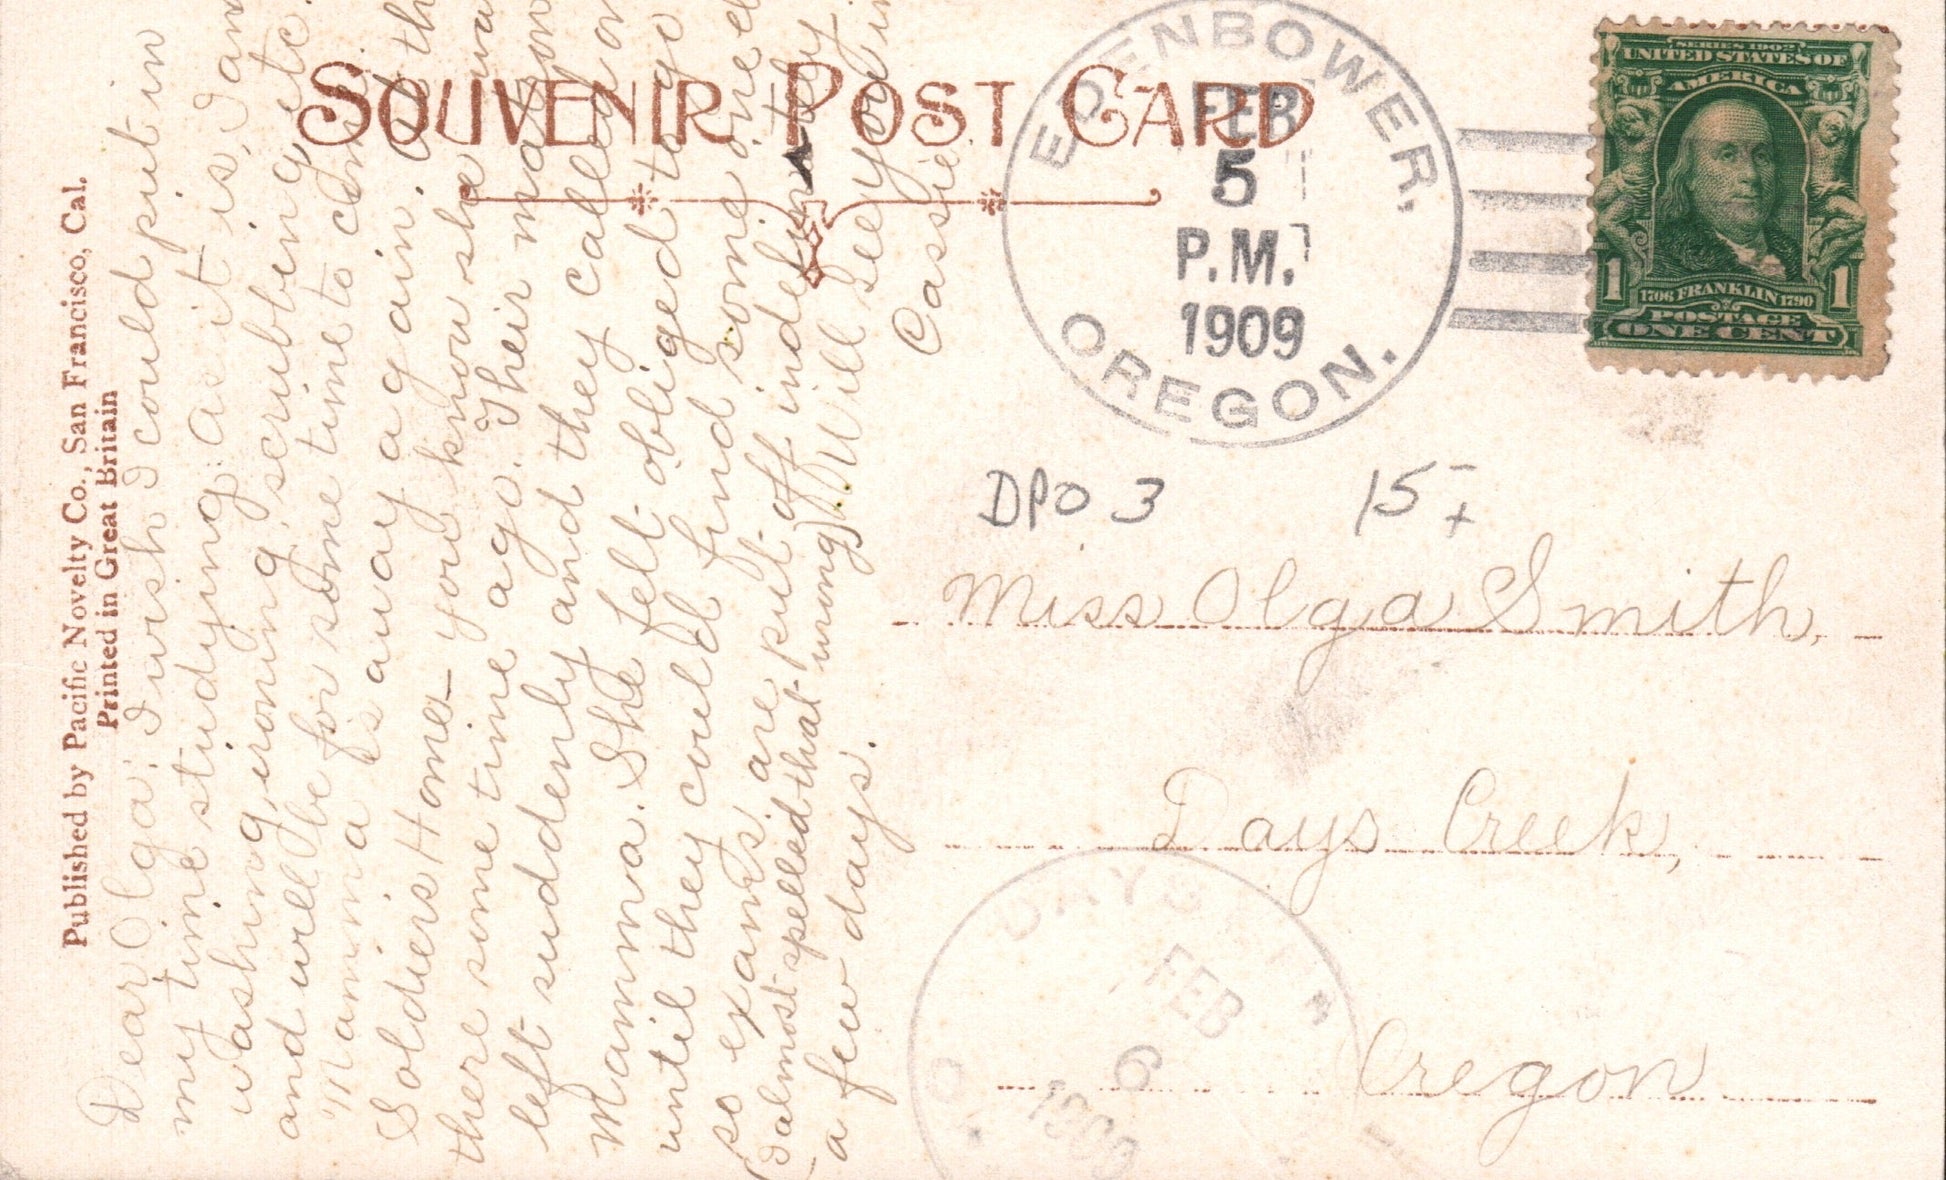 SOUVENIR POST CARD
Published by Pacific Novelty Co., San Francisco, Cal.
Printed in Great Britain
EDENBOWER,
FEB
5
P.M.
1909
OREGON.
SERIES 1902
UNITED STATES OF
AMERICA
1706 FRANKLIN 1790
1 1
POSTAGE
ONE CENT
DPO 3 15
Dear Olga; I wish I could put in
my time studying. As it is, I am
washing, ironing, scrubbing, etc.
and will be for some time to come.
Mamma is away again. At th
Soldiers Home - you know she wa
there some time ago. Their matron
left suddenly and they called on
Mamma. She felt obliged to go
until they could find some one el
so exams. are put off indefinitely
(almost spelled that wrong) Will see you in
a few days.
Cassie.
Miss Olga Smith,
Days Creek,
Oregon
DAYS
FEB
6
1909
O